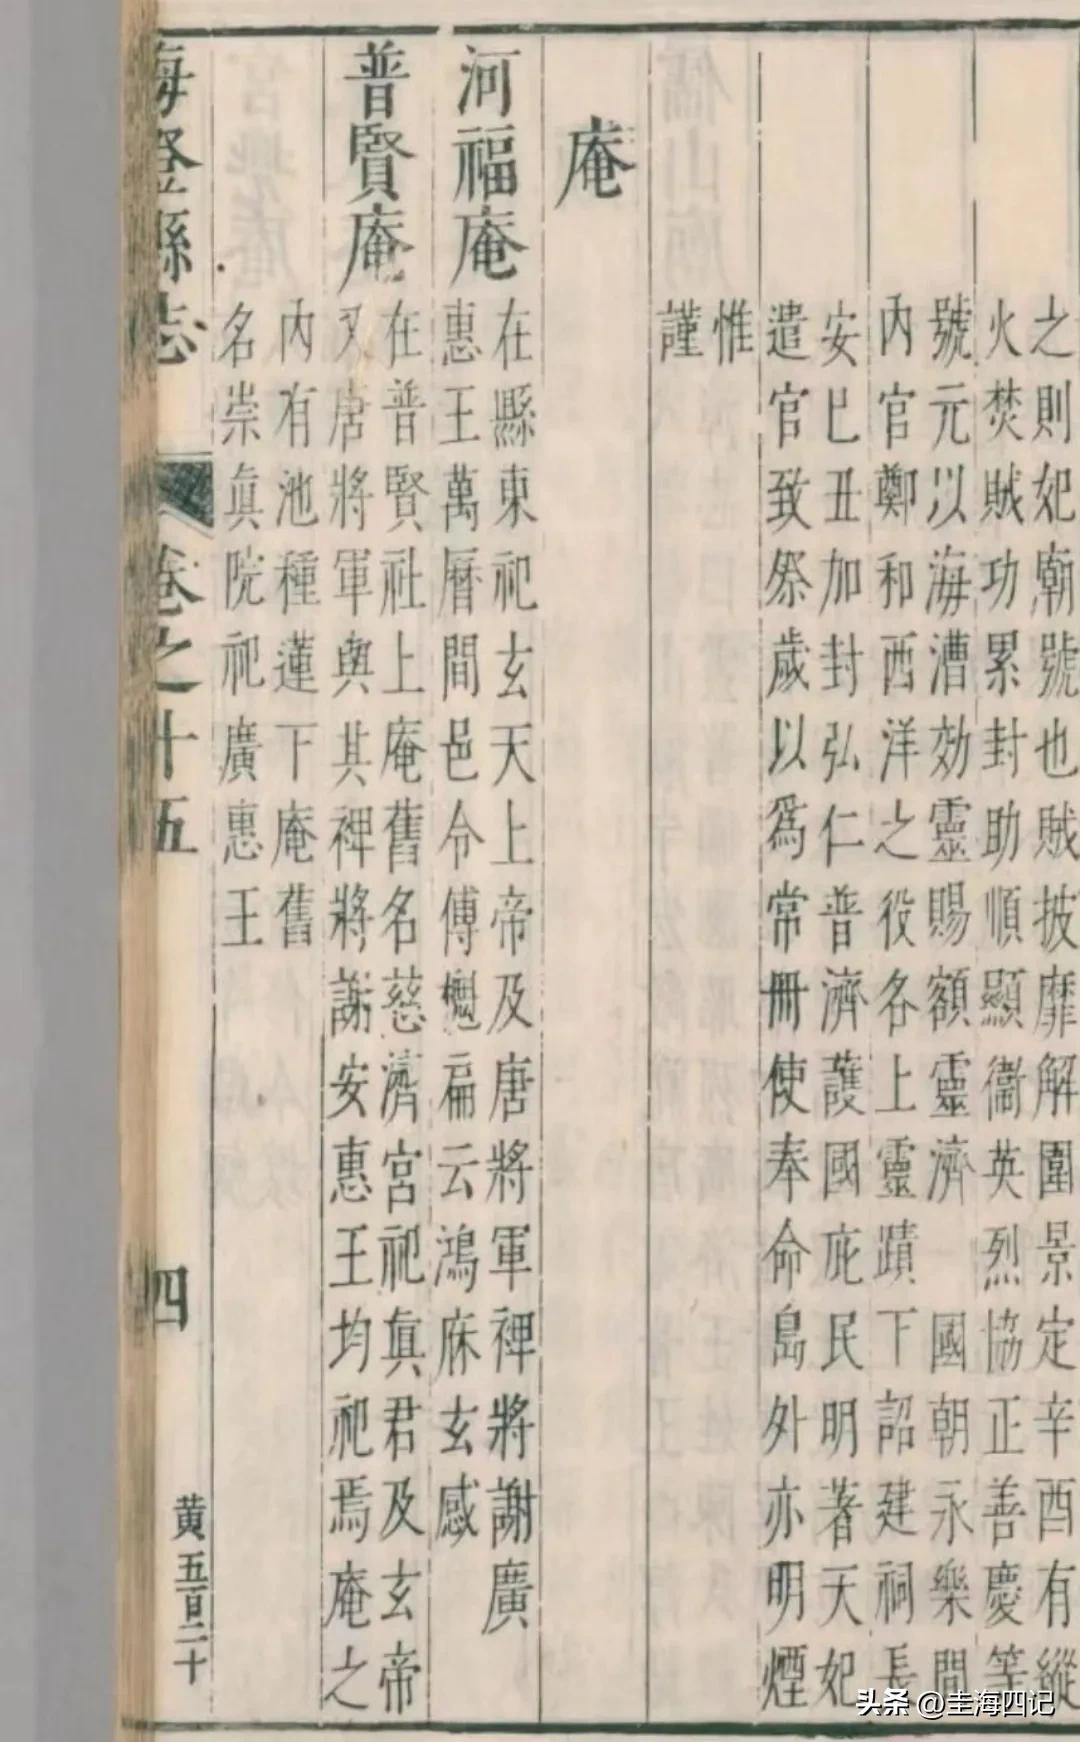 之則妃廟號也賊披靡解圍景定辛酉有縱
火焚賊功累封助順顯衞英烈協正善慶等
號元以海漕効靈賜額靈濟　國朝永樂間
內官鄭和西洋之役各上靈蹟下詔建祠長
安已丑加封弘仁普濟護國庇民明著天妃
遣官致祭歲以爲常冊使奉命島外亦明煙
惟
謹
庵
河福庵
在縣東祀玄天上帝及唐將軍裨將謝廣
惠王萬曆間邑令傅櫆扁云鴻庥玄感
普賢庵
在普賢社上庵舊名慈濟宮祀真君及玄帝
又唐將軍與其裨將謝安惠王均祀焉庵之
內有池種蓮下庵舊
名崇眞院祀廣惠王
海澄縣志
卷之十五
四
黄五百二十
头条 @圭海四记